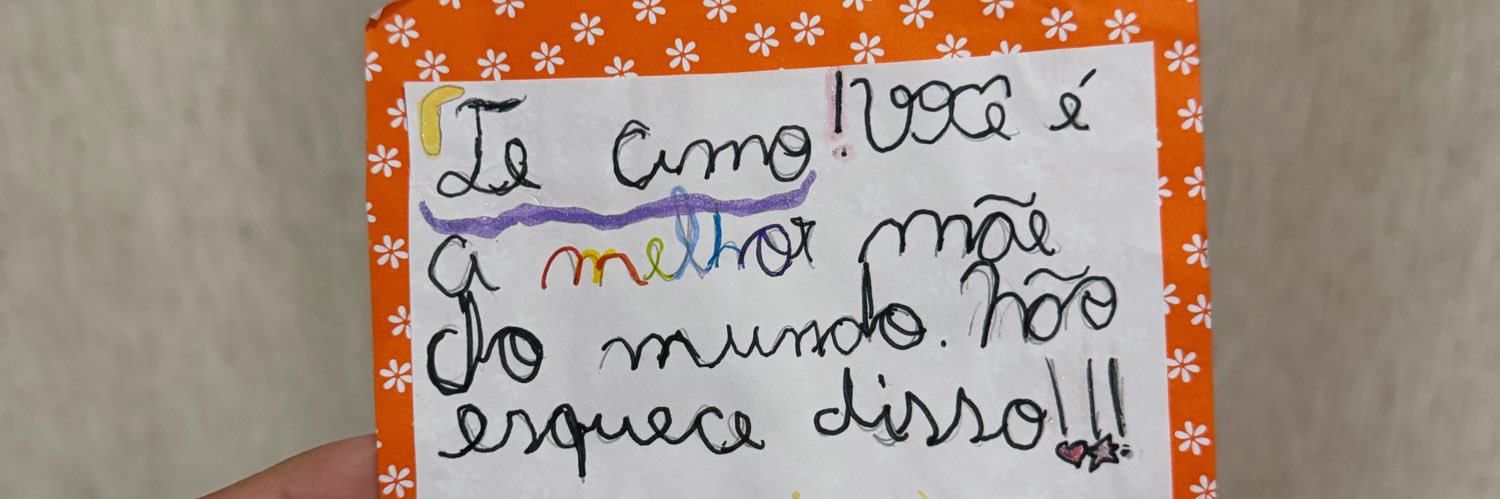 Te amo! Você é
a melhor mãe
do mundo. Não
esquece disso!!!